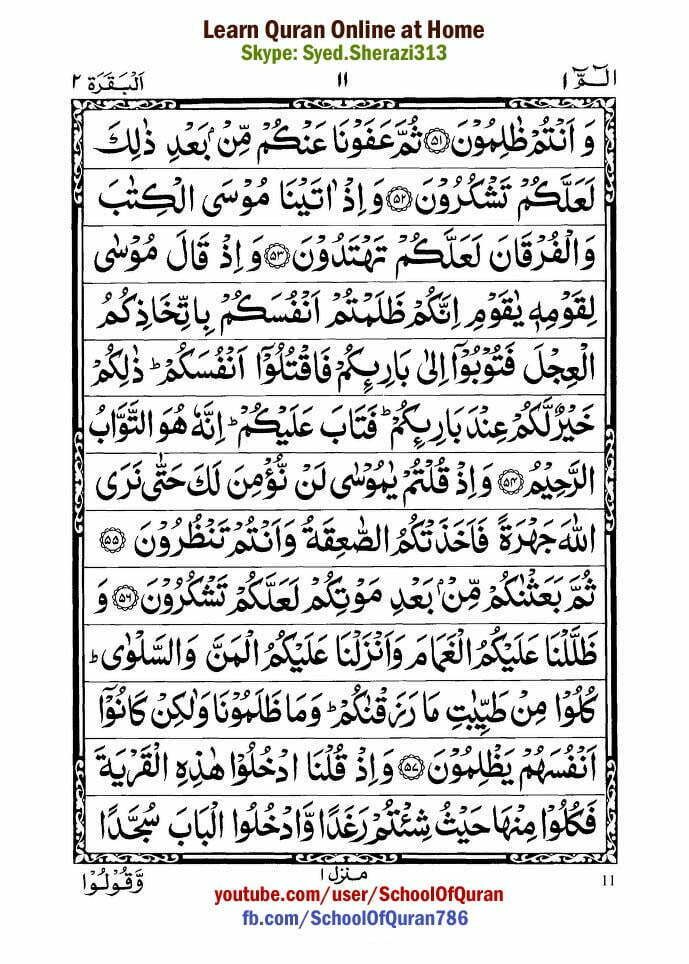 Learn Quran Online at Home
Skype: Syed.Sherazi313
الٓمّٓ ١ ١١ اَلْبَقَرَة ٢
وَ اَنْتُمْ ظٰلِمُوْنَ ۝۵۱ ثُمَّ عَفَوْنَا عَنْكُمْ مِّنْۢ بَعْدِ ذٰلِكَ
لَعَلَّكُمْ تَشْكُرُوْنَ ۝۵۲ وَ اِذْ اٰتَيْنَا مُوْسَى الْكِتٰبَ
وَالْفُرْقَانَ لَعَلَّكُمْ تَهْتَدُوْنَ ۝۵۳ وَ اِذْ قَالَ مُوْسٰى
لِقَوْمِهٖ يٰقَوْمِ اِنَّكُمْ ظَلَمْتُمْ اَنْفُسَكُمْ بِاتِّخَاذِكُمُ
الْعِجْلَ فَتُوْبُوْۤا اِلٰى بَارِئِكُمْ فَاقْتُلُوْۤا اَنْفُسَكُمْ ؕ ذٰلِكُمْ
خَيْرٌ لَّكُمْ عِنْدَ بَارِئِكُمْ ؕ فَتَابَ عَلَيْكُمْ ؕ اِنَّهٗ هُوَ التَّوَّابُ
الرَّحِيْمُ ۝۵۴ وَ اِذْ قُلْتُمْ يٰمُوْسٰى لَنْ نُّؤْمِنَ لَكَ حَتّٰى نَرَى
اللّٰهَ جَهْرَةً فَاَخَذَتْكُمُ الصّٰعِقَةُ وَ اَنْتُمْ تَنْظُرُوْنَ ۝۵۵
ثُمَّ بَعَثْنٰكُمْ مِّنْۢ بَعْدِ مَوْتِكُمْ لَعَلَّكُمْ تَشْكُرُوْنَ ۝۵۶ وَ
ظَلَّلْنَا عَلَيْكُمُ الْغَمَامَ وَ اَنْزَلْنَا عَلَيْكُمُ الْمَنَّ وَ السَّلْوٰى ؕ
كُلُوْا مِنْ طَيِّبٰتِ مَا رَزَقْنٰكُمْ ؕ وَ مَا ظَلَمُوْنَا وَلٰكِنْ كَانُوْۤا
اَنْفُسَهُمْ يَظْلِمُوْنَ ۝۵۷ وَ اِذْ قُلْنَا ادْخُلُوْا هٰذِهِ الْقَرْيَةَ
فَكُلُوْا مِنْهَا حَيْثُ شِئْتُمْ رَغَدًا وَّ ادْخُلُوا الْبَابَ سُجَّدًا
11 منزل ١ وَّقُوْلُوْا
youtube.com/user/SchoolOfQuran
fb.com/SchoolOfQuran786